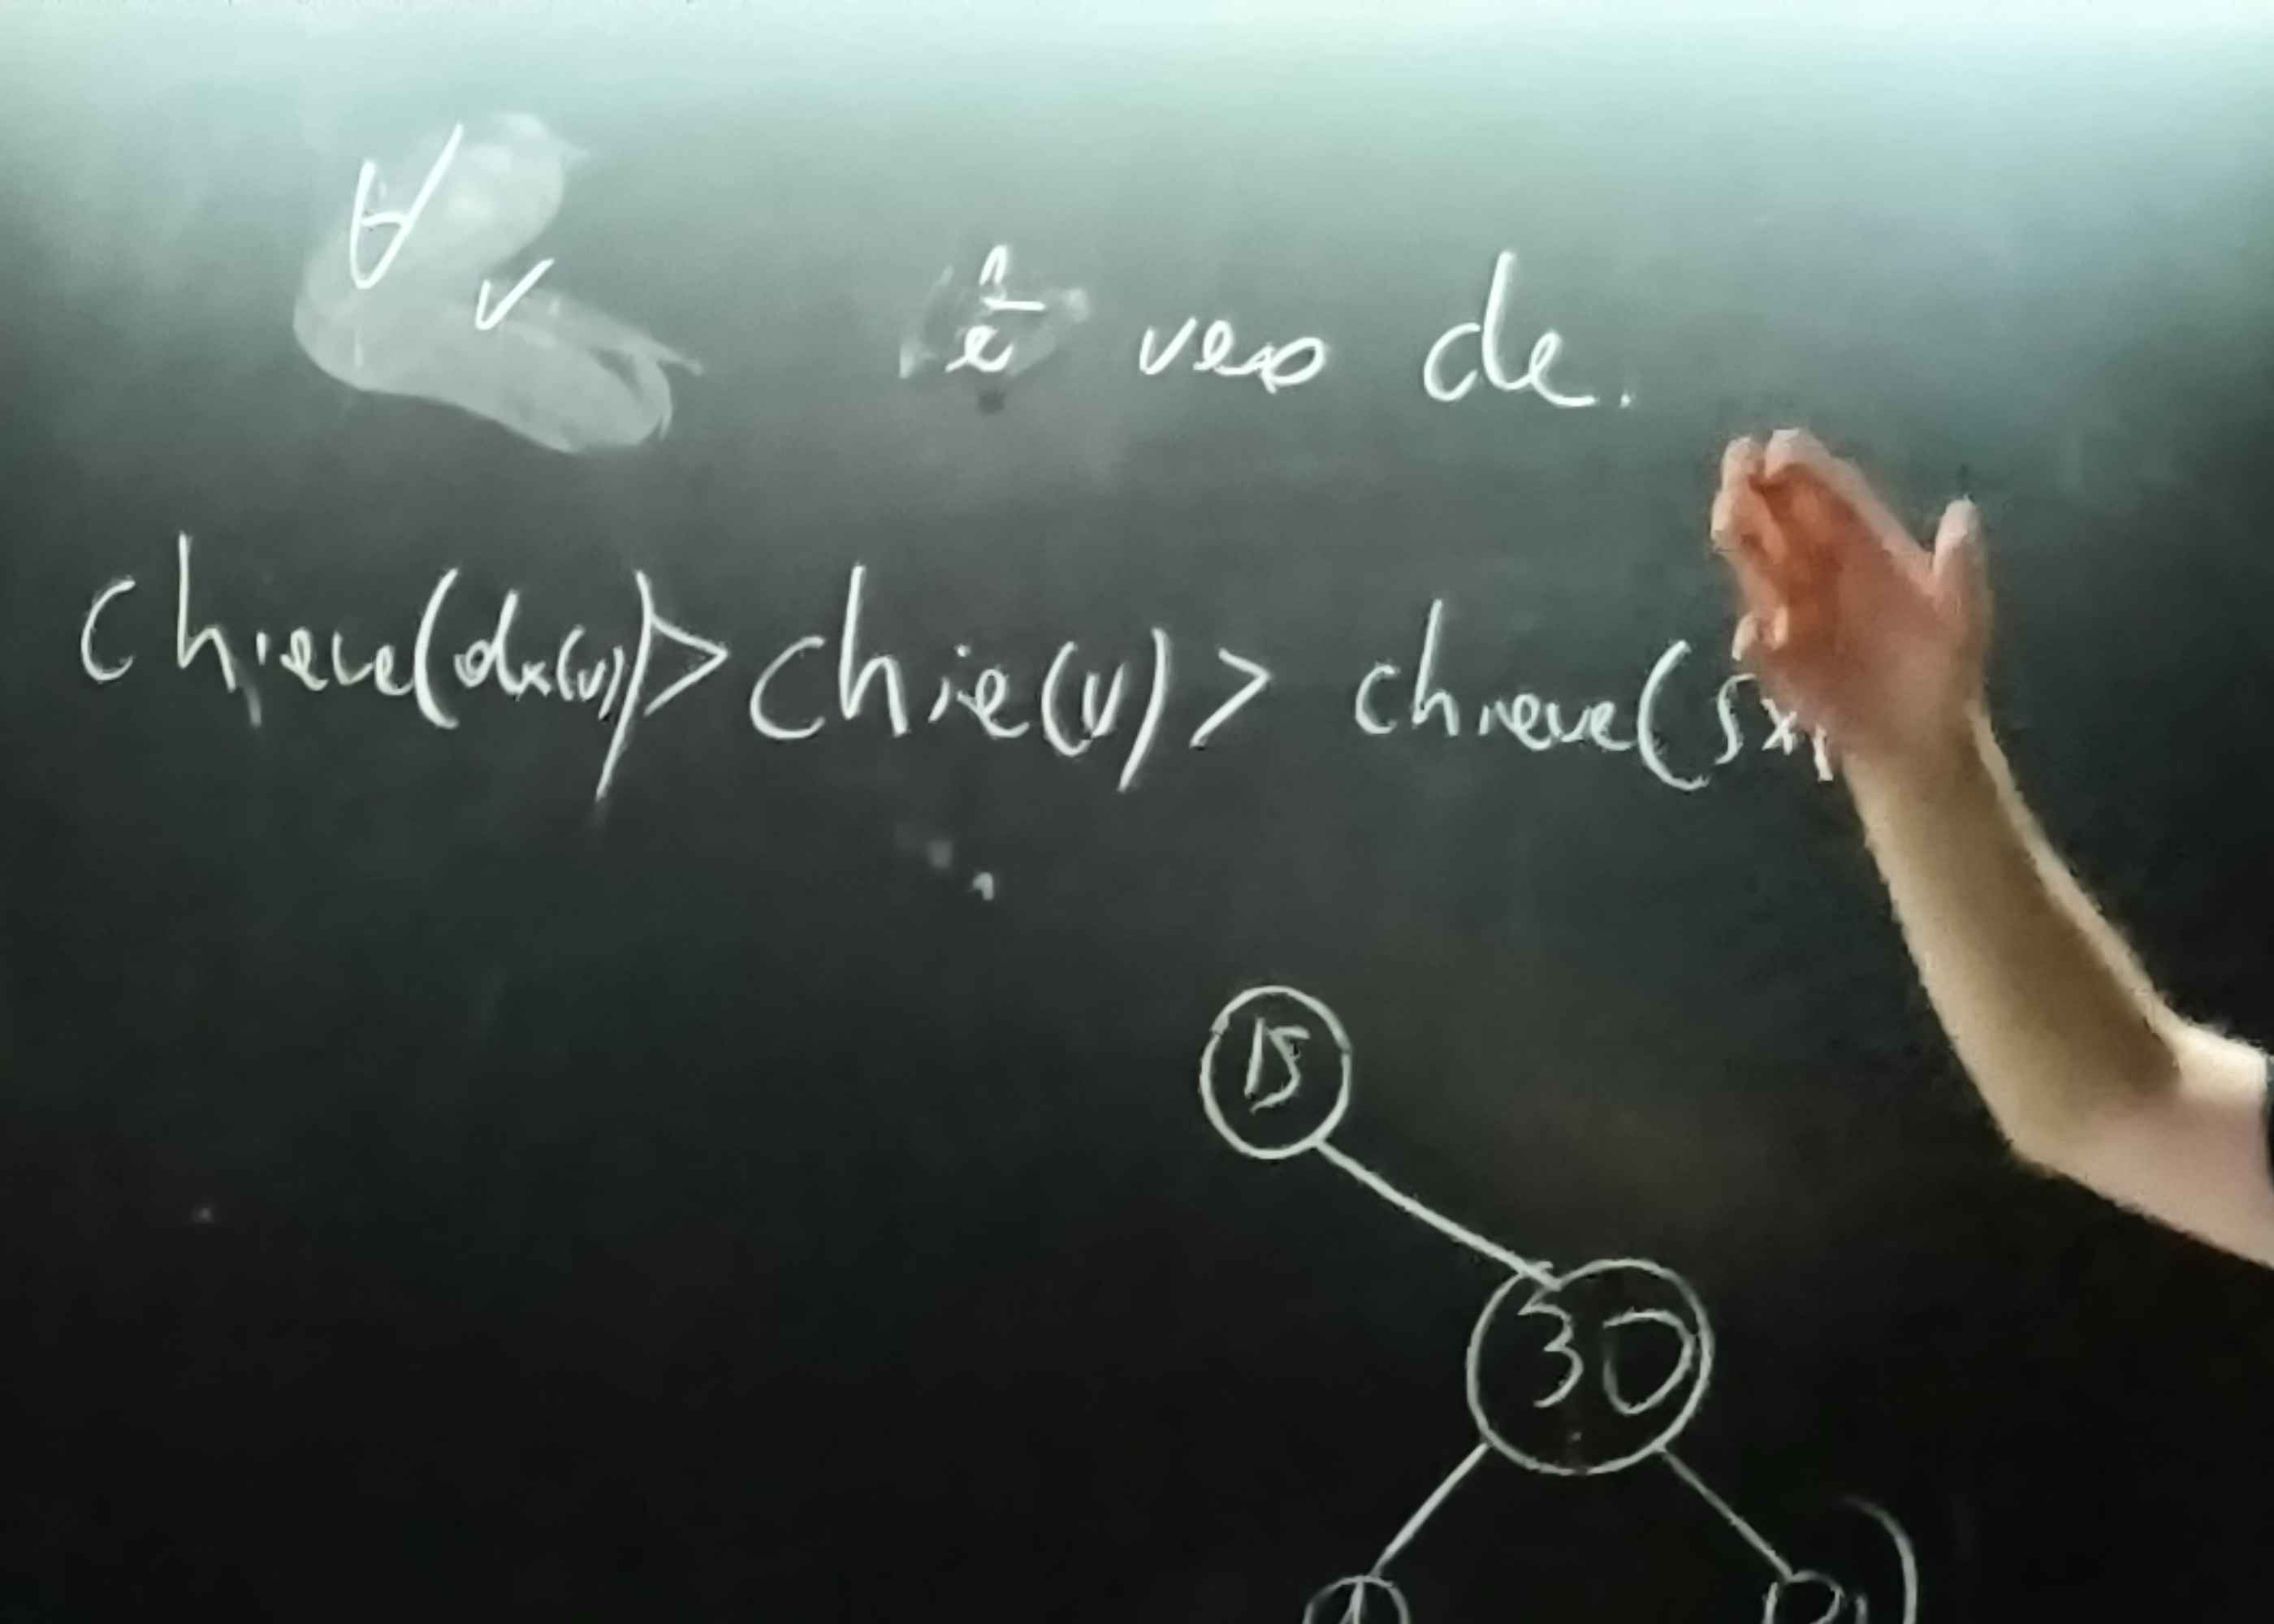 ∀ v è vero che.
chiave(dx(v)) > chie(v) > chiave(sx(
15
30